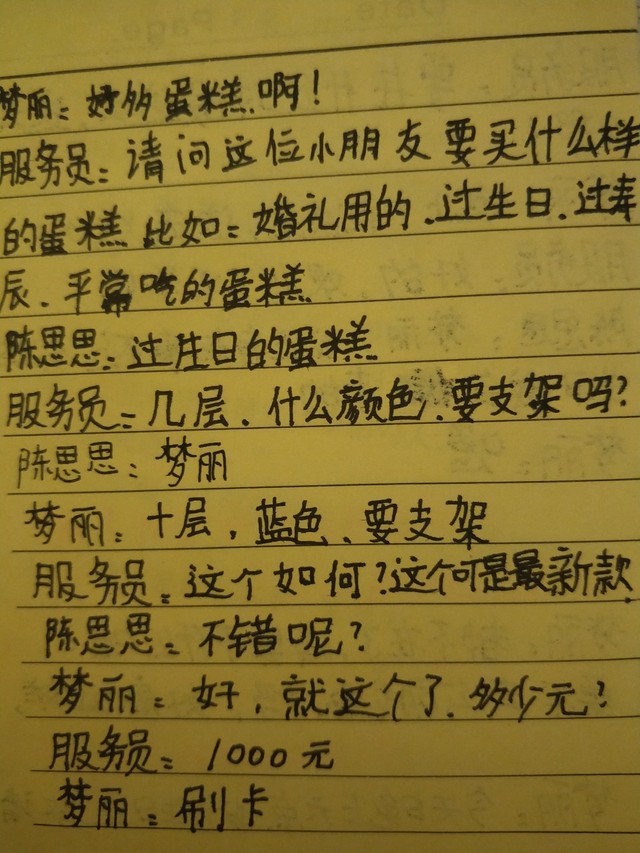 梦丽：好多蛋糕啊！
服务员：请问这位小朋友要买什么样
的蛋糕比如：婚礼用的、过生日、过寿
辰、平常吃的蛋糕
陈思思：过生日的蛋糕
服务员：几层、什么颜色、要支架吗?
陈思思：梦丽
梦丽：十层，蓝色、要支架
服务员：这个如何?这个可是最新款
陈思思：不错呢?
梦丽：好，就这个了、多少元?
服务员：1000元
梦丽：刷卡